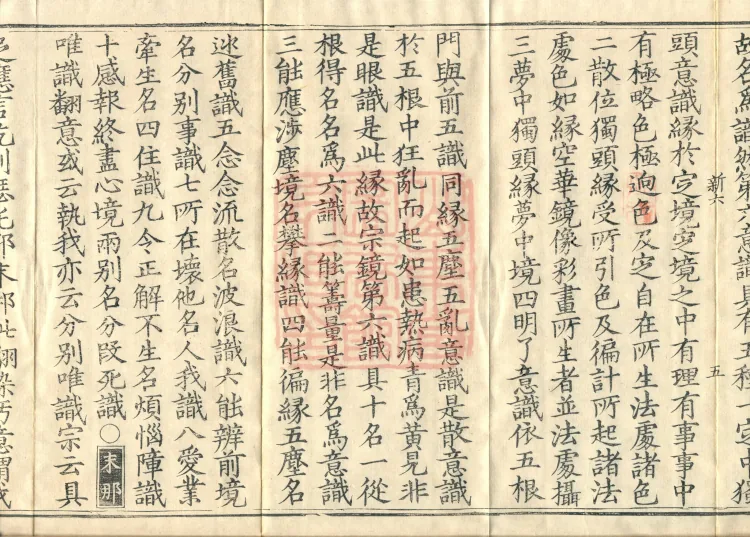 故名為識然第六意識具有五種一定中獨
新六 五
頭意識緣於定境定境之中有理有事事中
有極略色極逈色及定自在所生法處諸色
二散位獨頭緣受所引色及徧計所起諸法
處色如緣空華鏡像彩畫所生者並法處攝
三夢中獨頭緣夢中境四明了意識依五根
門與前五識同緣五塵五亂意識是散意識
於五根中狂亂而起如患熱病青為黃見非
是眼識是此緣故宗鏡第六識具十名一從
根得名名爲六識二能籌量是非名爲意識
三能應涉塵境名攀緣識四能徧緣五塵名
迯舊識五念念流散名波浪識六能辨前境
名分別事識七所在壞他名人我識八愛業
牽生名四住識九令正解不生名煩惱障識
十感報終盡心境兩別名分段死識○末那
唯識翻意或云執我亦云分別唯識宗云具
足應言訖利瑟吒耶末那此翻染汚意謂我